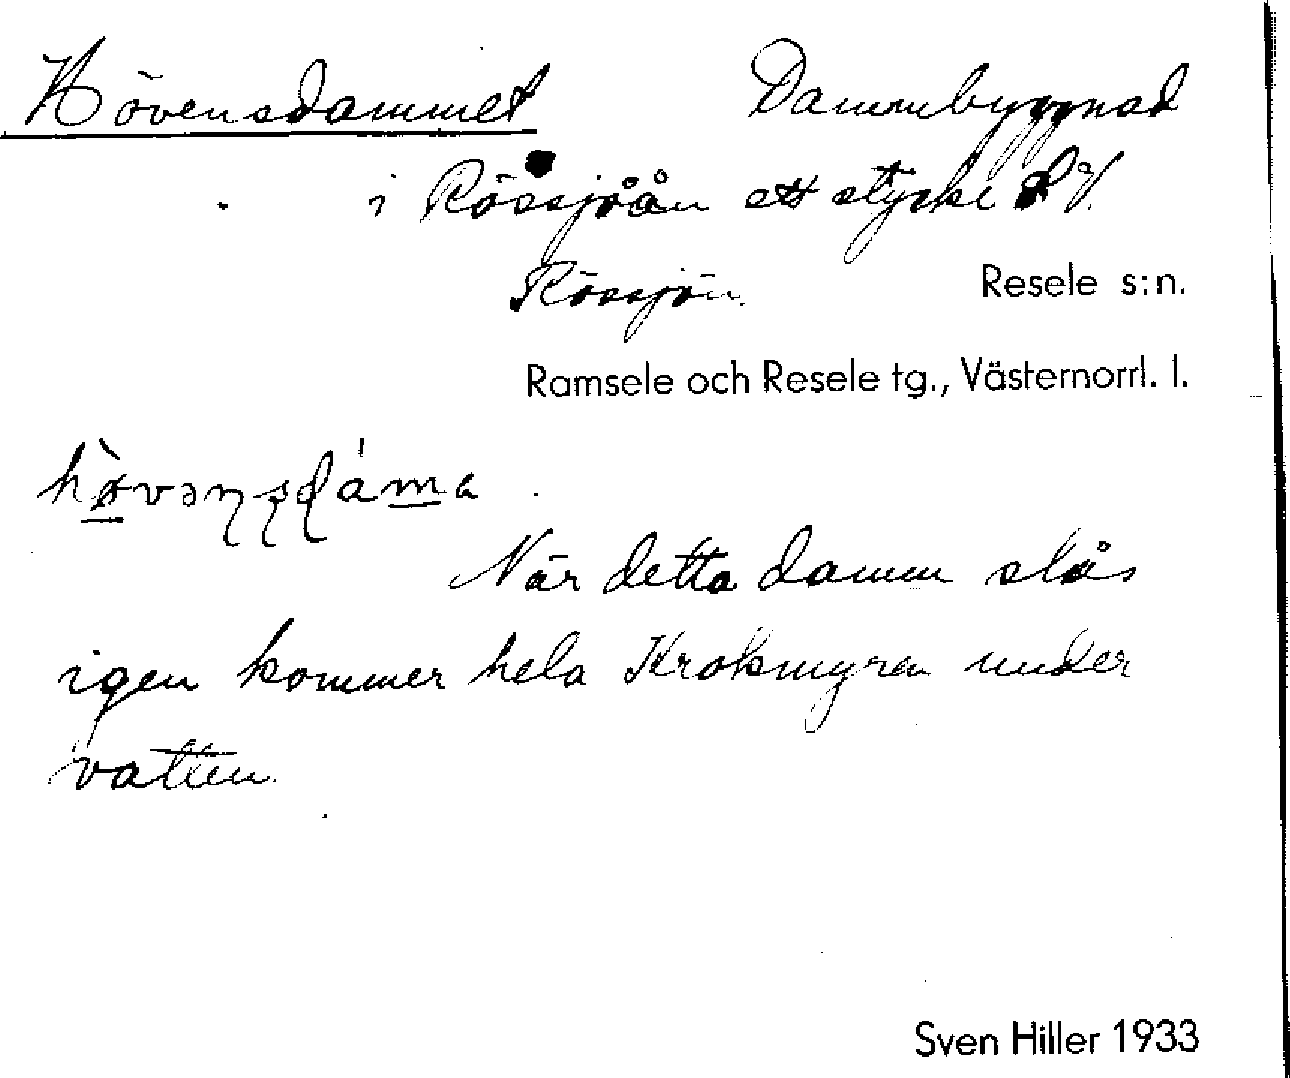 Hövensdammet Dammbyggnad
i Rössjöån ett stycke S V.
Rössjön. Resele s:n.
Ramsele och Resele tg., Västernorrl. l.
När detta damm slås
igen kommer hela Krokmyren under
vatten.
Sven Hiller 1933